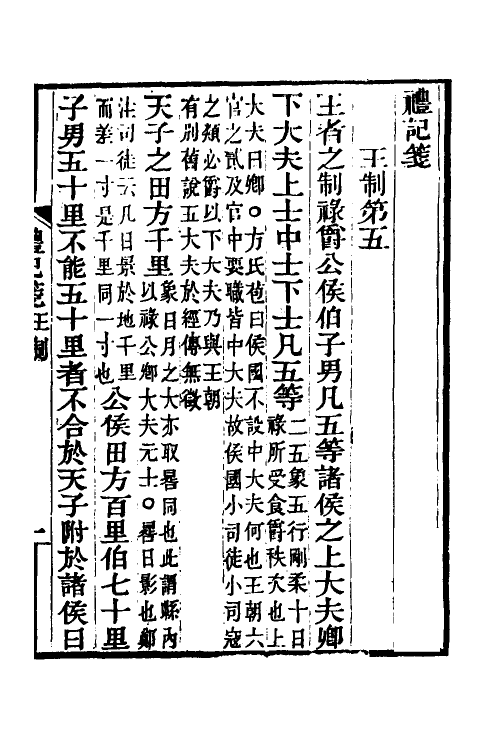 禮記箋
王制第五
王者之制祿爵公侯伯子男凡五等諸侯之上大夫卿
下大夫上士中士下士凡五等
二五象五行剛柔十日
祿所受食爵秩次也上
大夫曰卿○方氏苞曰侯國不設中大夫何也王朝六
官之貳及官中要職皆中大夫故侯國小司徒小司寇
之類必爵以下大夫乃與王朝
有別舊說五大夫於經傳無徵
天子之田方千里
象日月之大亦取晷同也此謂縣內
以祿公卿大夫元士○晷日影也鄭
注司徒云凡日景於地千里
而差一寸是千里同一寸也
公侯田方百里伯七十里
子男五十里不能五十里者不合於天子附於諸侯曰
禮記箋王制
一